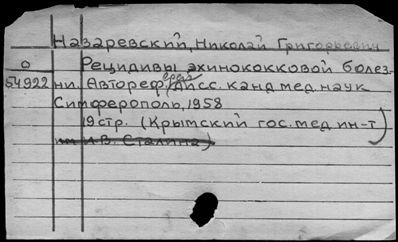 Назаревский, Николай Григорьевич
о Рецидивы эхинококковой болез-
54922 ни. Автореф. дисс. канд. мед. наук
Симферополь, 1958
19 стр. (Крымский гос. мед. ин-т)
им. И.В. Сталина)